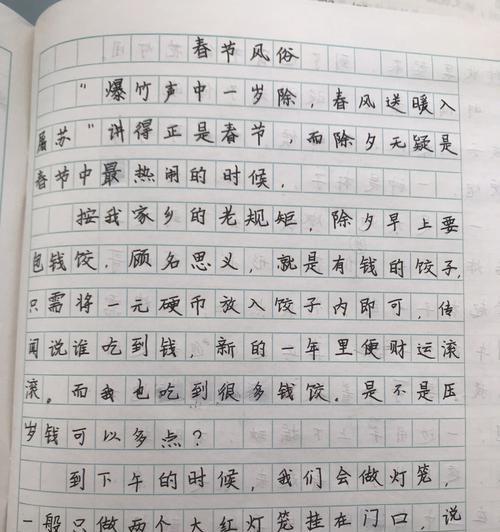 春节风俗
“爆竹声中一岁除，春风送暖入
屠苏”讲得正是春节，而除夕无疑是
春节中最热闹的时候，
按我家乡的老规矩，除夕早上要
包钱饺，顾名思义，就是有钱的饺子，
只需将一元硬币放入饺子内即可，传
闻说谁吃到钱，新的一年里便财运滚
滚。而我也吃到很多钱饺．是不是压
岁钱可以多点？
到下午的时候，我们会做灯笼，
一般只做两个大红灯笼挂在门口，说